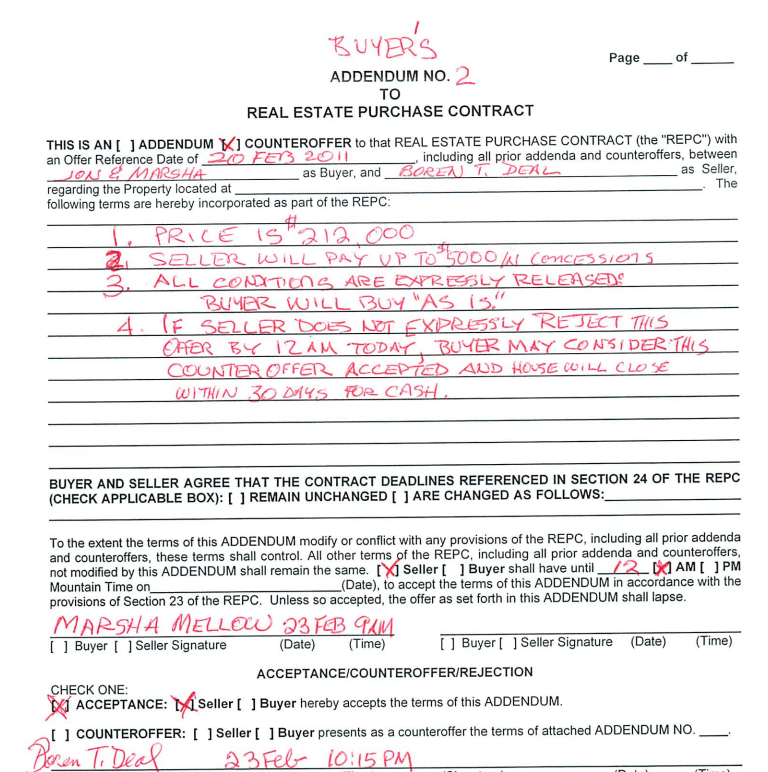 BUYER'S
Page ____ of ______
ADDENDUM NO. 2
TO
REAL ESTATE PURCHASE CONTRACT
THIS IS AN [ ] ADDENDUM [X] COUNTEROFFER to that REAL ESTATE PURCHASE CONTRACT (the "REPC") with
an Offer Reference Date of 20 FEB 2011, including all prior addenda and counteroffers, between
JON & MARSHA as Buyer, and BOREN T. DEAL as Seller,
regarding the Property located at ______. The
following terms are hereby incorporated as part of the REPC:
1. PRICE IS $212,000
2. SELLER WILL PAY UP TO $5000 IN CONCESSIONS
3. ALL CONDITIONS ARE EXPRESSLY RELEASED:
BUYER WILL BUY "AS IS."
4. IF SELLER DOES NOT EXPRESSLY REJECT THIS
OFFER BY 12 AM TODAY, BUYER MAY CONSIDER THIS
COUNTER OFFER ACCEPTED AND HOUSE WILL CLOSE
WITHIN 30 DAYS FOR CASH.
BUYER AND SELLER AGREE THAT THE CONTRACT DEADLINES REFERENCED IN SECTION 24 OF THE REPC
(CHECK APPLICABLE BOX): [ ] REMAIN UNCHANGED [ ] ARE CHANGED AS FOLLOWS:______
To the extent the terms of this ADDENDUM modify or conflict with any provisions of the REPC, including all prior addenda
and counteroffers, these terms shall control. All other terms of the REPC, including all prior addenda and counteroffers,
not modified by this ADDENDUM shall remain the same. [X] Seller [ ] Buyer shall have until 12 [X] AM [ ] PM
Mountain Time on______(Date), to accept the terms of this ADDENDUM in accordance with the
provisions of Section 23 of the REPC. Unless so accepted, the offer as set forth in this ADDENDUM shall lapse.
MARSHA MELLOW 23 FEB 9AM
[ ] Buyer [ ] Seller Signature (Date) (Time) [ ] Buyer [ ] Seller Signature (Date) (Time)
ACCEPTANCE/COUNTEROFFER/REJECTION
CHECK ONE:
[X] ACCEPTANCE: [X] Seller [ ] Buyer hereby accepts the terms of this ADDENDUM.
[ ] COUNTEROFFER: [ ] Seller [ ] Buyer presents as a counteroffer the terms of attached ADDENDUM NO. ____.
Boren T. Deal 23 Feb 10:15 PM